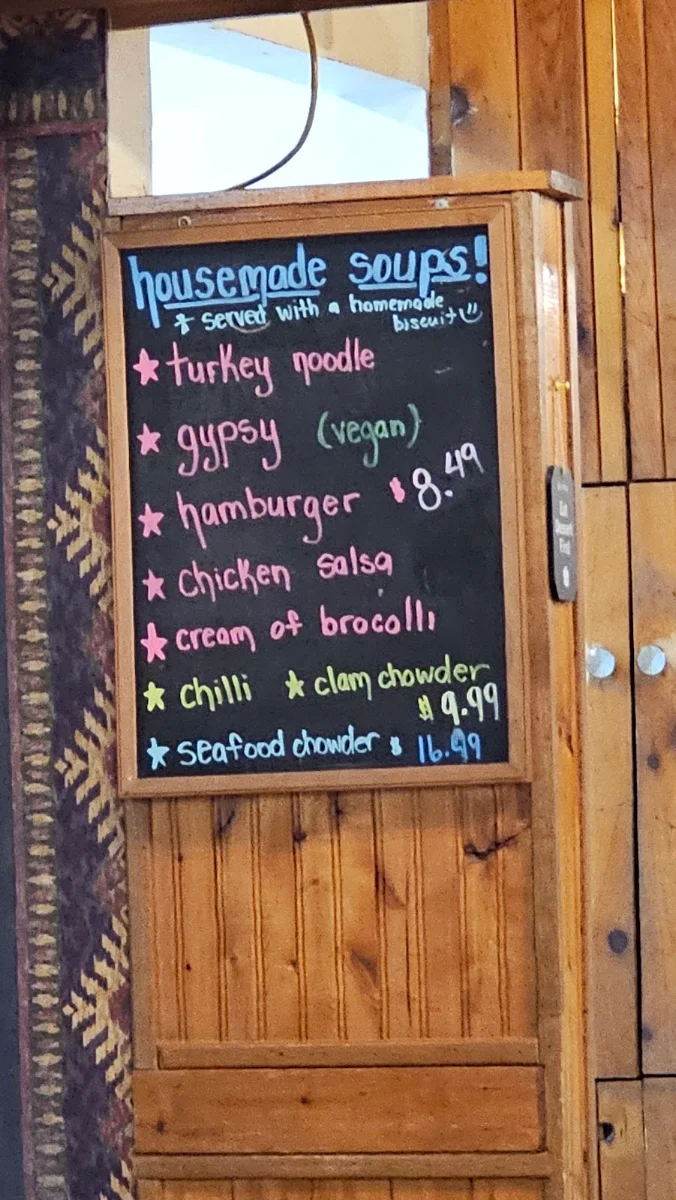 housemade soups!
* served with a homemade
biscuit
★ turkey noodle
★ gypsy (vegan)
★ hamburger $8.49
★ chicken salsa
★ cream of brocolli
★ chilli ★ clam chowder
$9.99
★ seafood chowder $16.99